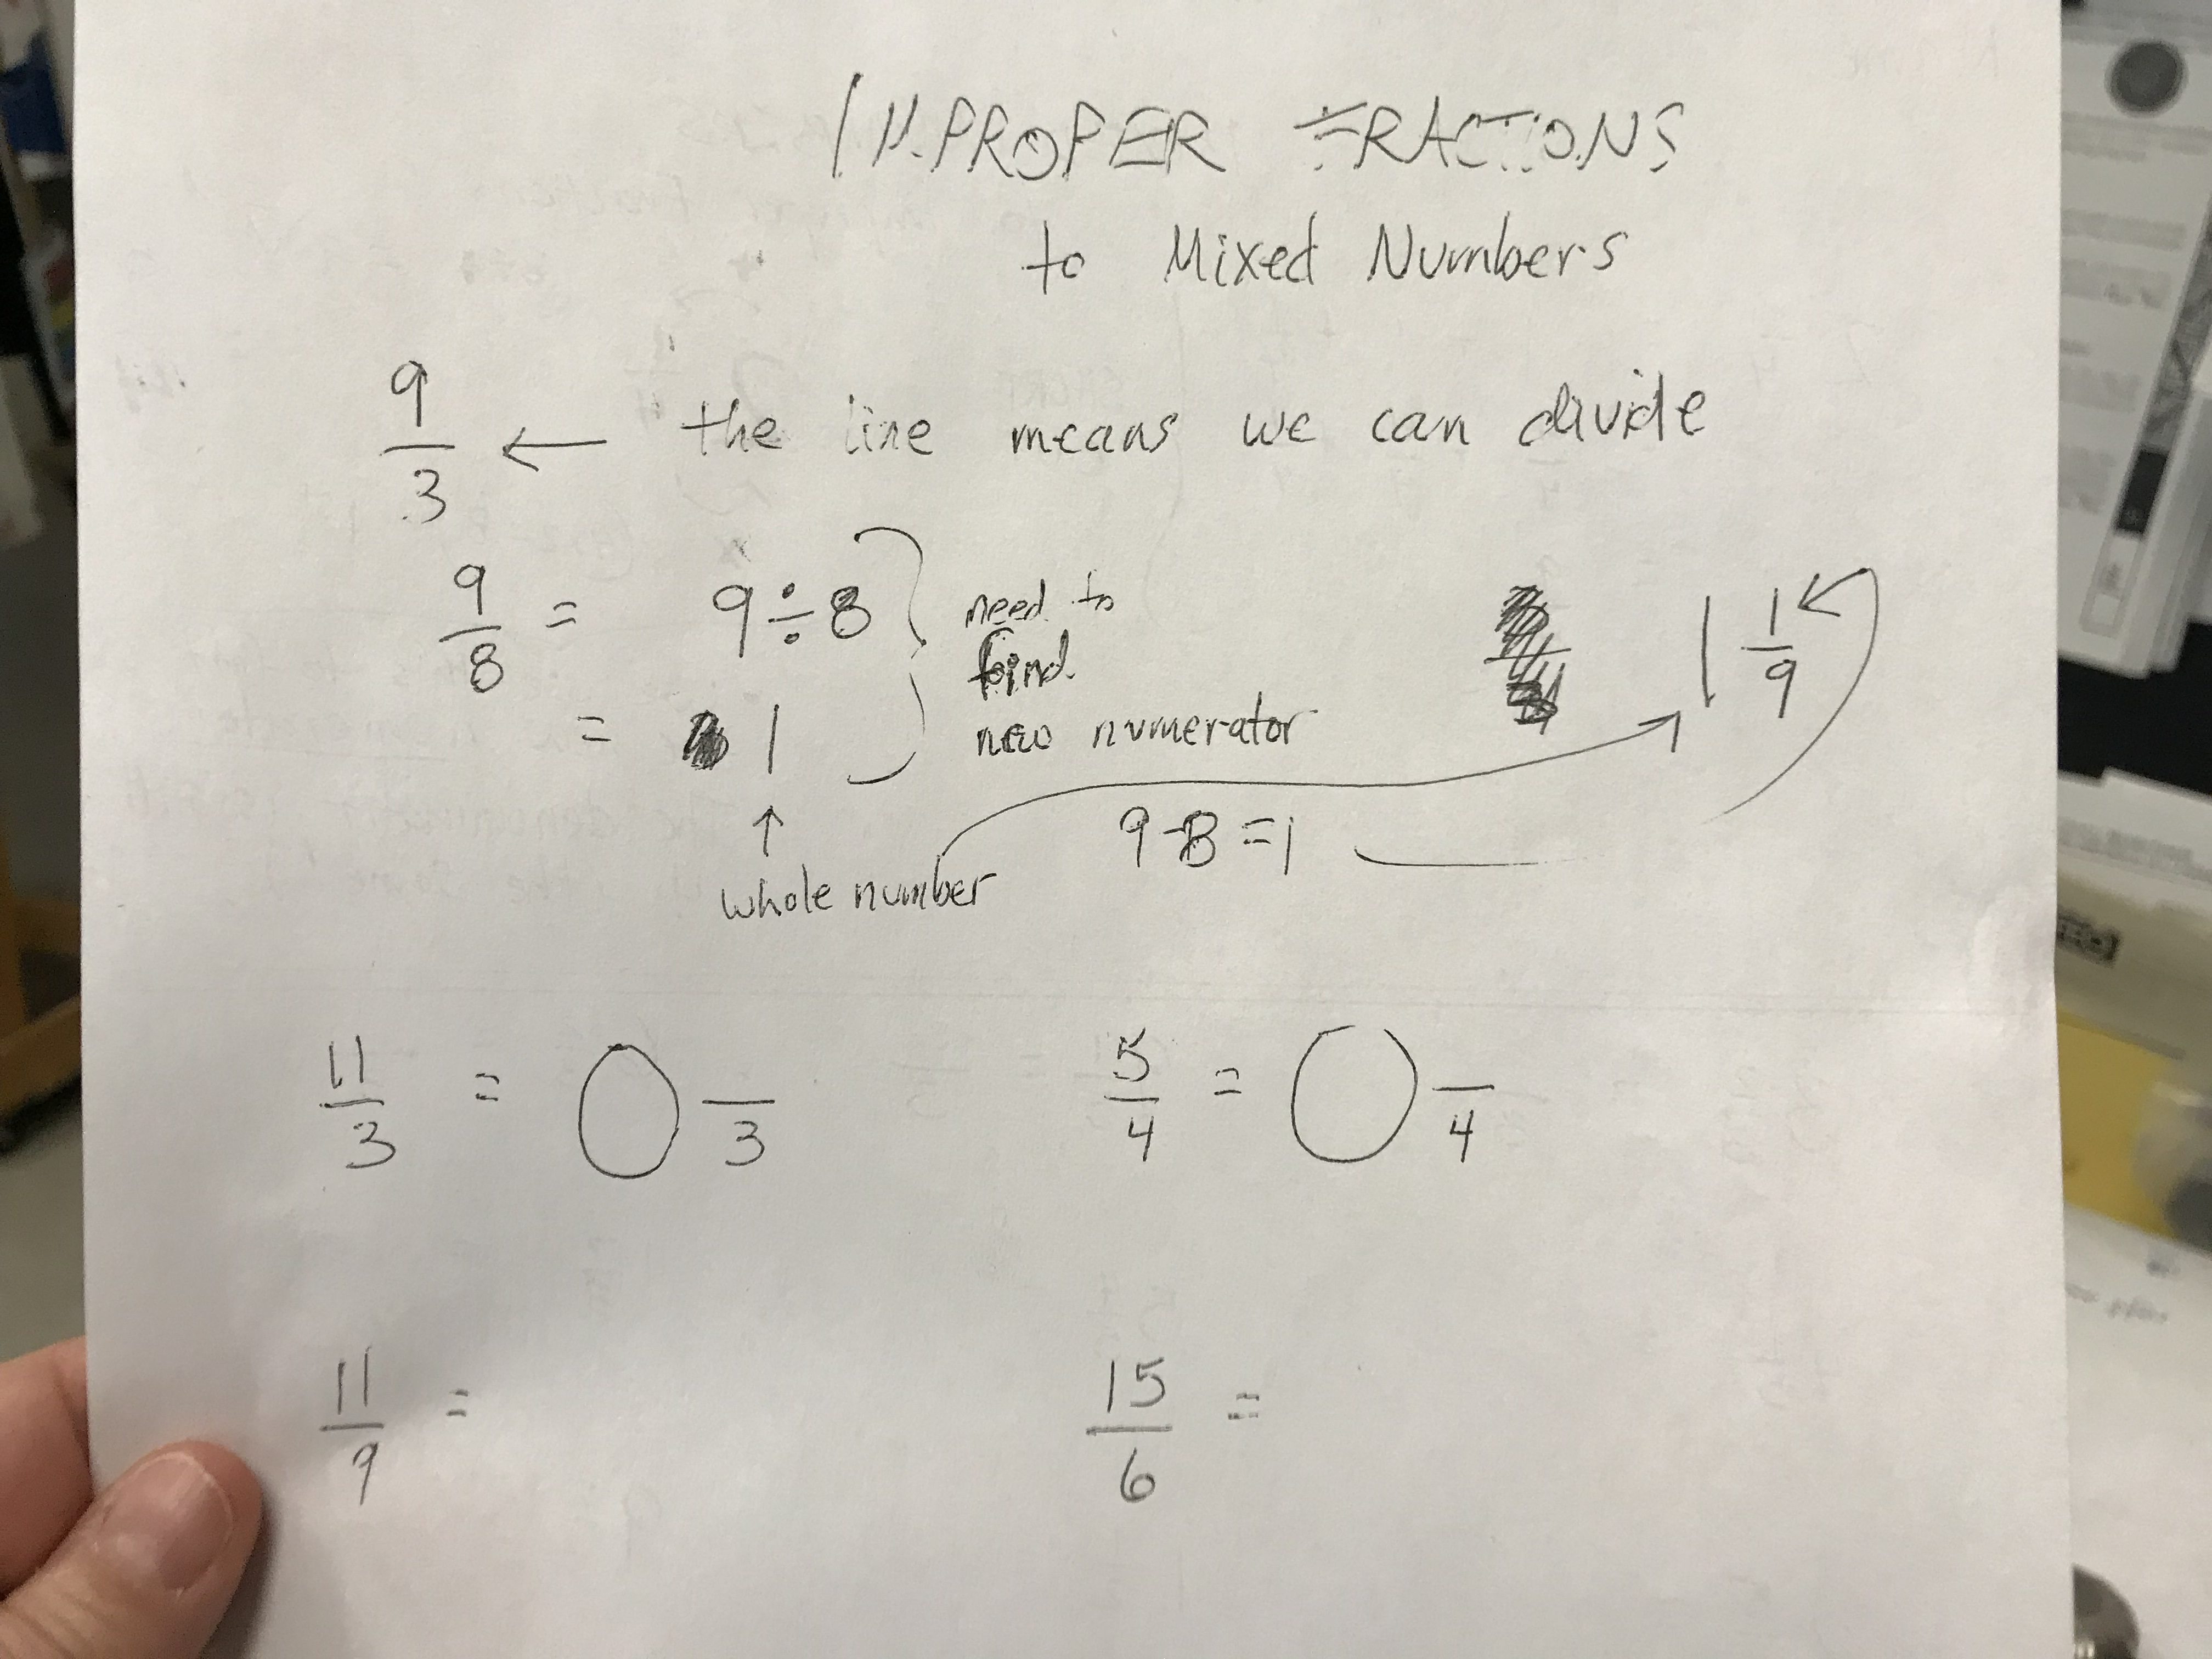 IMPROPER FRACTIONS
to Mixed Numbers
9/3 ← the line means we can divide
9/8 = 9÷8
= 1
need to
find
new numerator
1 1/9
↑
whole number
9-8=1
11/3 = ◯ _/3
5/4 = ◯ _/4
11/9 =
15/6 =